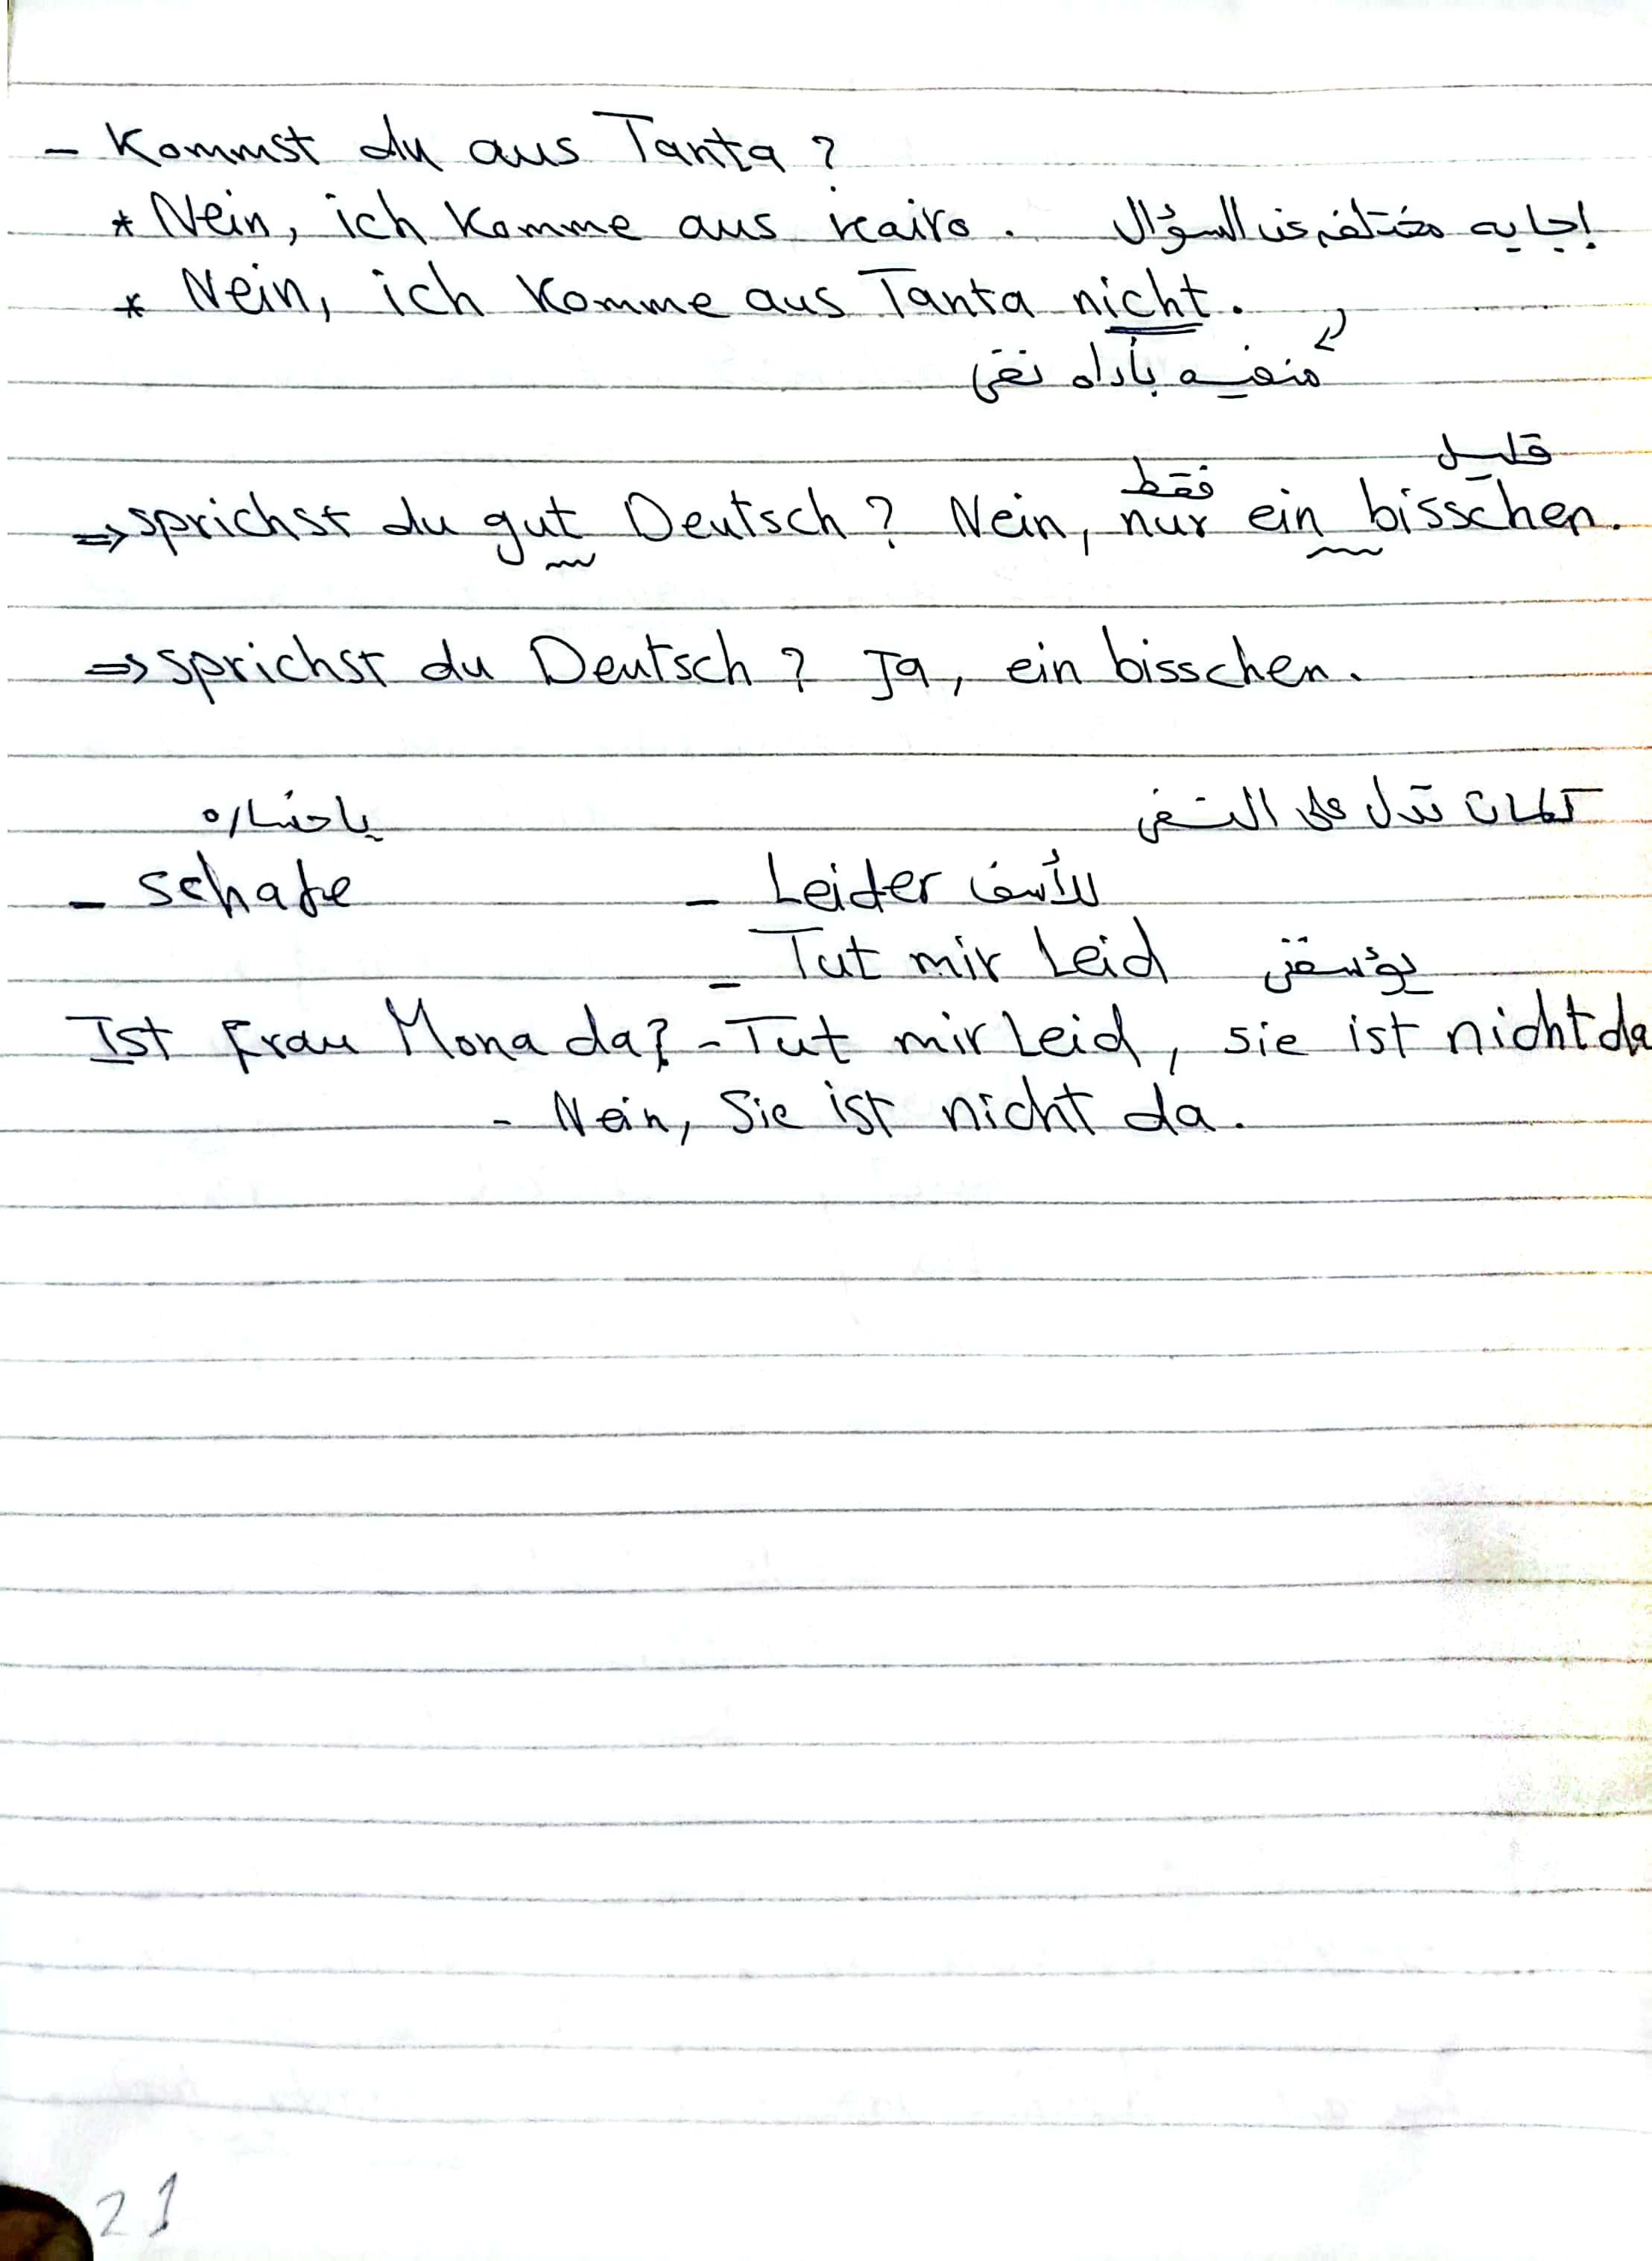 - Kommst du aus Tanta ?
* Nein, ich komme aus Kairo . إجابه مختلفه عن السؤال
* Nein, ich komme aus Tanta nicht .
منفيه بأداه نفى
قليل
فقط
⇒ sprichst du gut Deutsch ? Nein, nur ein bisschen.
⇒ sprichst du Deutsch ? Ja, ein bisschen .
كلمات تدل على النفى
ياخساره
- schade - Leider للأسف
- Tut mir Leid يؤسفنى
Ist Frau Mona da? - Tut mir Leid, sie ist nicht da
- Nein, Sie ist nicht da .
21